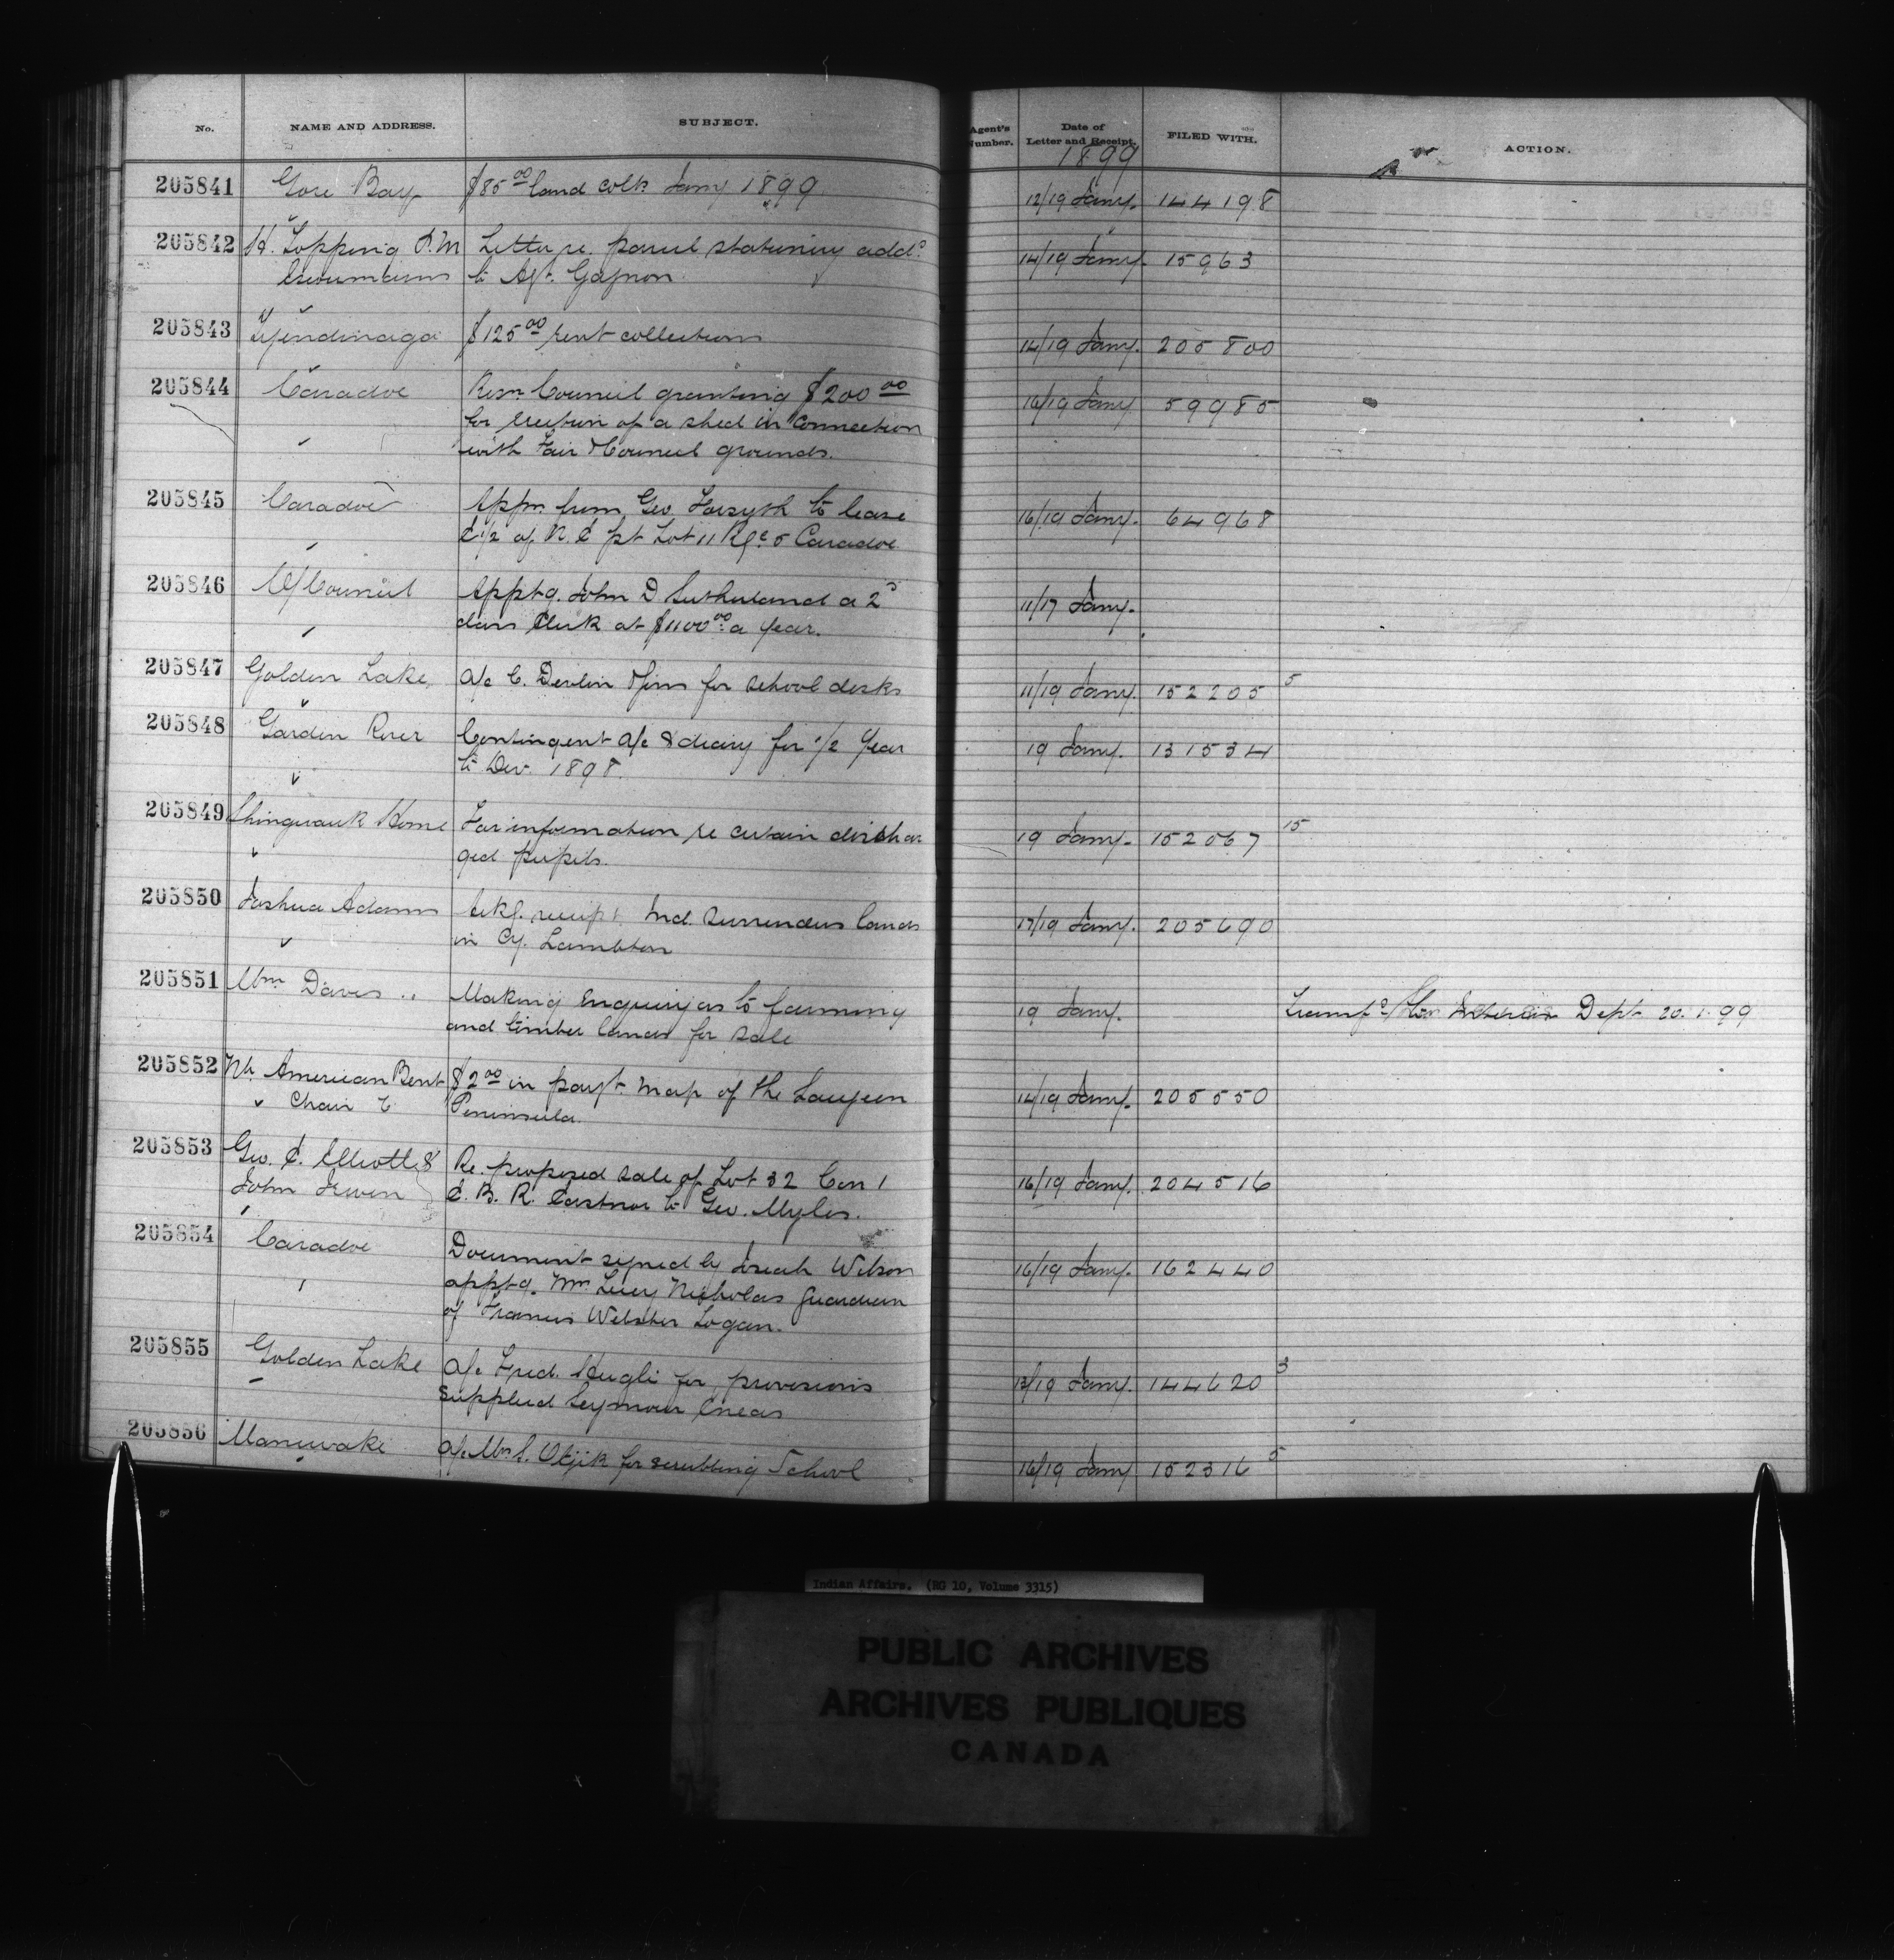 No. NAME AND ADDRESS. SUBJECT. Agent's Number. Date of Letter and Receipt. FILED WITH. ACTION.
1899
205841 Gore Bay $85 00 land colln Jany 1899 12/19 Jany. 144198
205842 H. Topping P.M Letter re. parcel stationery addd 14/19 Jany. 15963
Escoumains to Agt. Gagnon
205843 Tyendinaga $125 00 rent collections 14/19 Jany. 205800
205844 Caradoc Resn Council granting $200 00 16/19 Jany 59985
for erection of a shed in connection
with Fair & Council grounds.
205845 Caradoc Appn from Geo. Forsyth to lease 16/19 Jany. 64968
E 1/2 of N. E pt Lot 11 Rge 5 Caradoc
205846 O/Council Apptg. John D Sutherland a 2d 11/17 Jany.
class Clerk at $1100 00 a year.
205847 Golden Lake a/c C. Devlin & firm for school desks 11/19 Jany. 152205 5
205848 Garden River Contingent a/c & diary for 1/2 year 19 Jany. 131534
to Dec. 1898.
205849 Shingwauk Home For information re certain dischar 19 Jany. 152067 15
ged pupils.
205850 Joshua Adams Ackg. receipt Ind. Surrenders lands 17/19 Jany. 205690
in Cy. Lambton
205851 Wm Davis .. Making enquiry as to farming 19 Jany. Transfd Interior Dept 20.1.99
and timber lands for sale
205852 Nh. American Bent $2 00 in payt. map of the Saugeen 14/19 Jany. 205550
Chair C Peninsula.
205853 Geo. E. Elliott & Re. proposed sale of Lot 32 Con 1 16/19 Jany. 204516
John Irwin E. B. R. Eastnor to Geo. Myles.
205854 Caradoc Document signed by Josiah Wilson 16/19 Jany. 162440
apptg. Mrs Lucy Nicholas guardian
of Francis Webster Logan.
205855 Golden Lake a/c Fred. Hugli for provisions 13/19 Jany. 144620 3
supplied Seymour Eneas
205856 Maniwaki a/c Mrs S. Otjik for scrubbing School 16/19 Jany 152316 5
Indian Affairs. (RG 10, Volume 3315)
PUBLIC ARCHIVES
ARCHIVES PUBLIQUES
CANADA